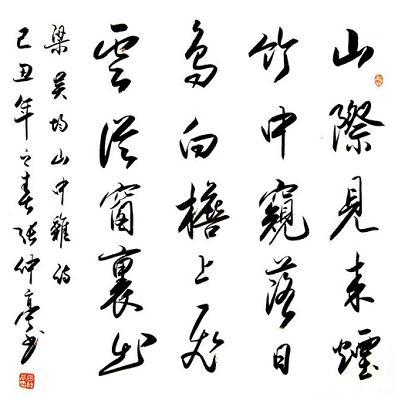 山際見来煙
竹中窺落日
鳥向檐上飛
雲從窗裏出
梁吳均山中雜詩
己丑年之春張仲亭書